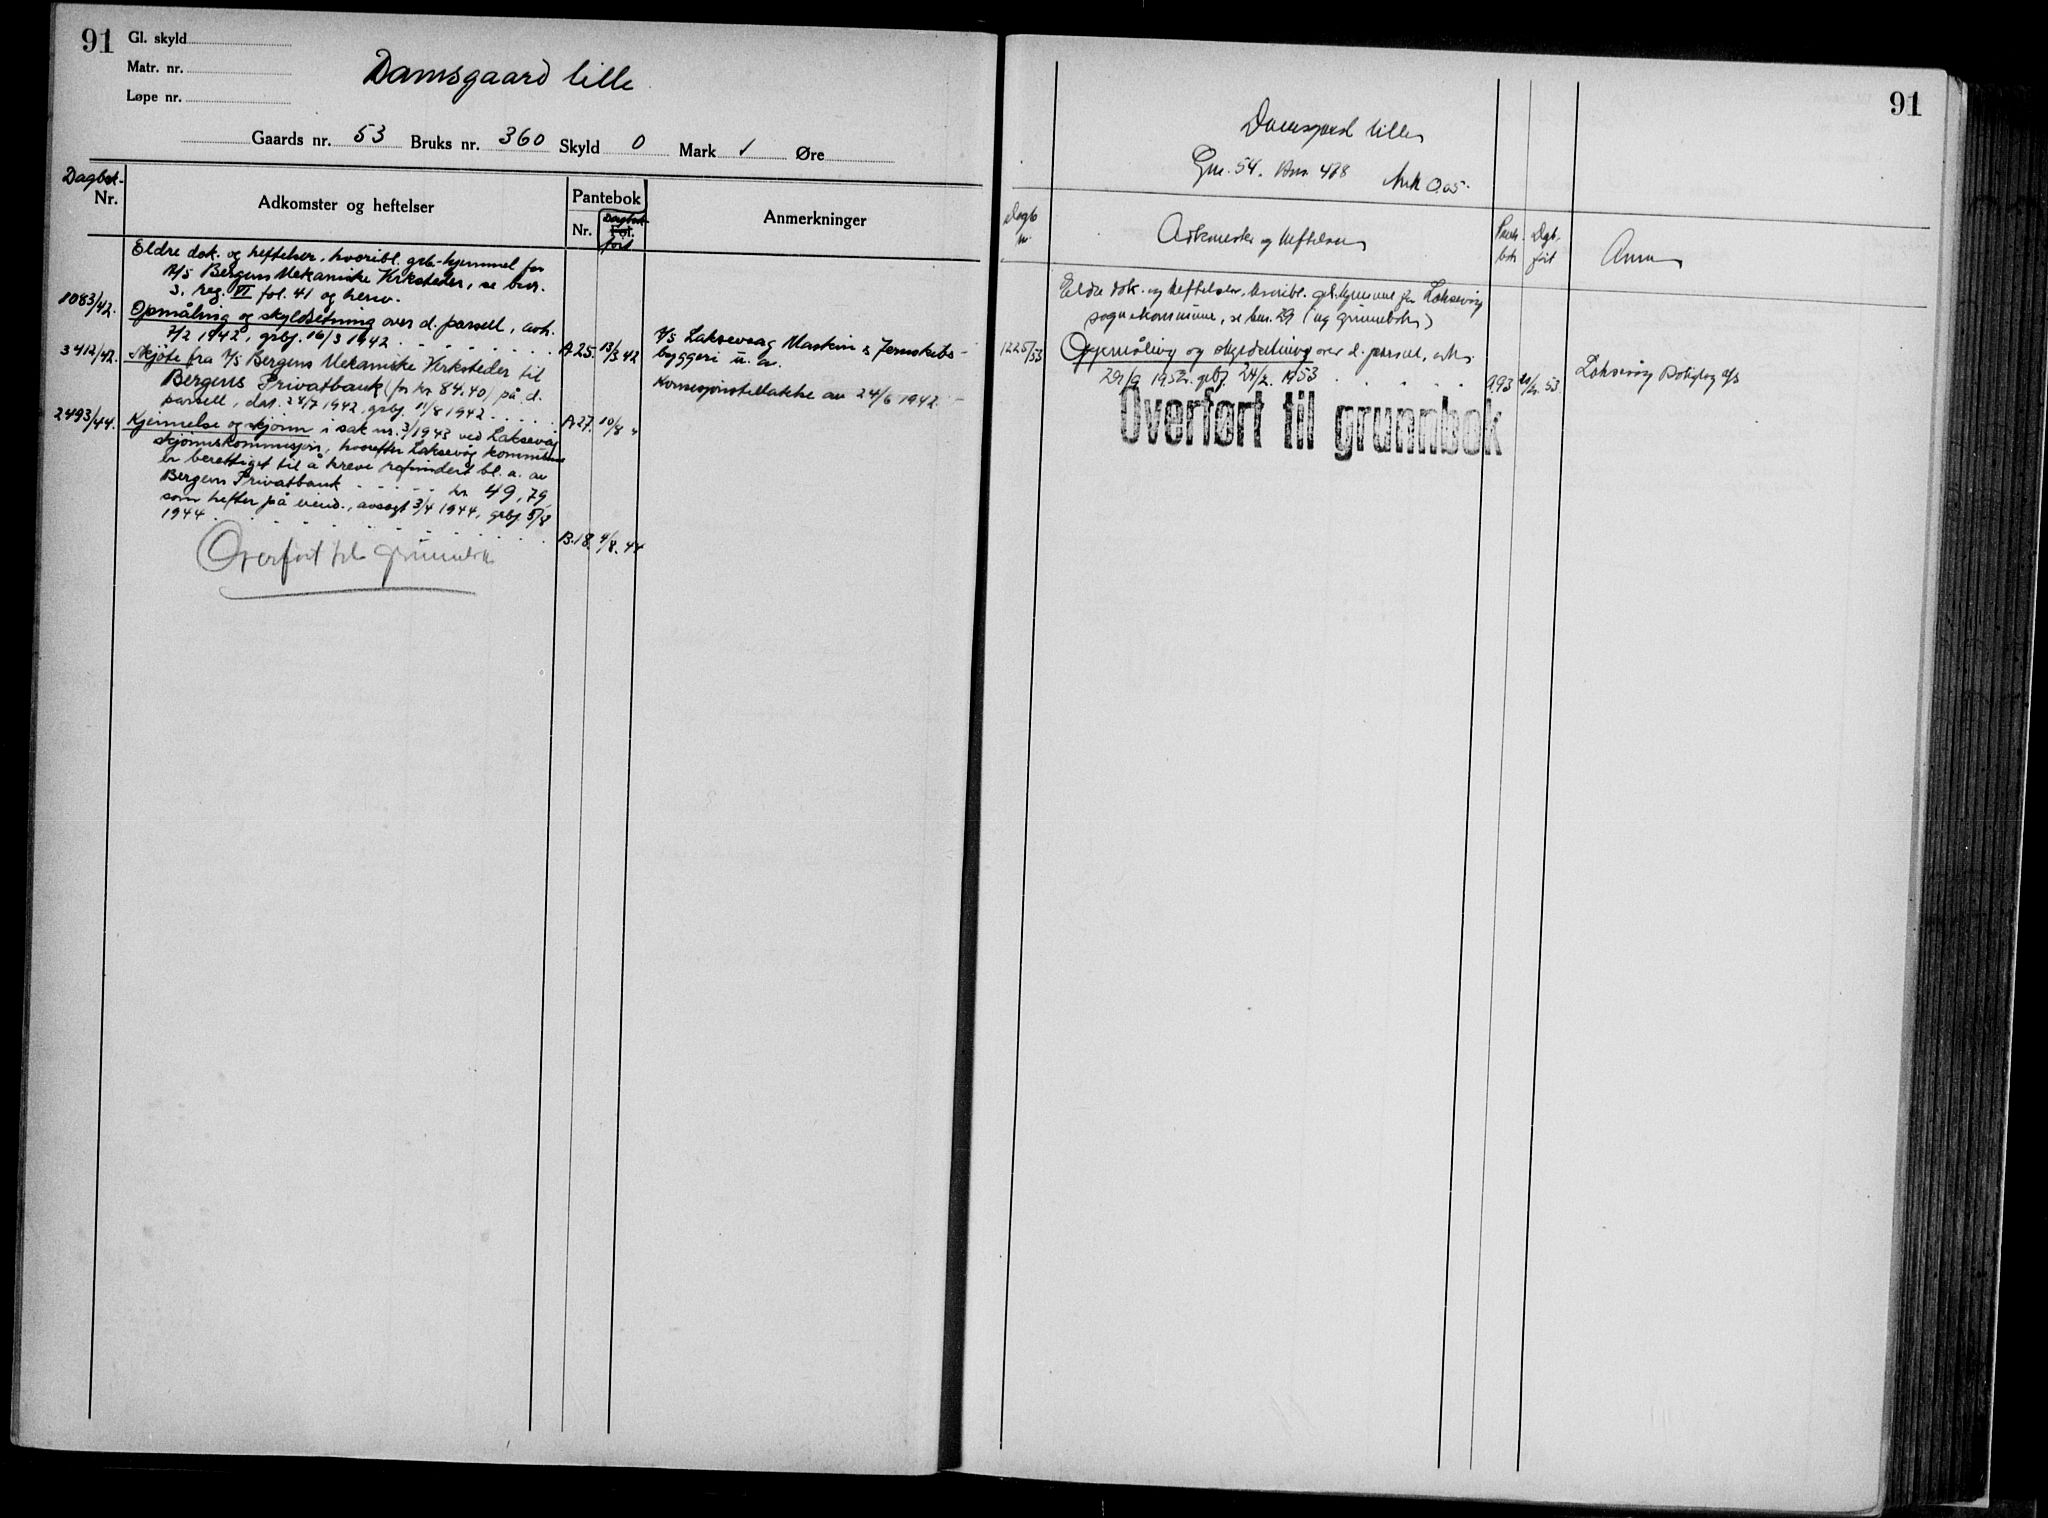 91
Gl. skyld
Matr. nr.
Løpe nr.
Damsgaard lille
Gaards nr. 53 Bruks nr. 360 Skyld 0 Mark 1 Øre
Dagbok-
Nr.
Adkomster og heftelser
Pantebok
Nr.
Fol.
Dagbok-
ført
Anmerkninger
Eldre dok. og heftelser, hvoribl. grb-hjemmel for
A/S Bergens Mekaniske Verksteder, se bnr.
3, reg. VI fol. 41 og henv.
1083/42. Opmåling og skyldsetning over d. parsell, avh.
7/2 1942, grbj. 16/3 1942 A.25. 13/3 42
A/S Laksevaag Maskin & Jernskibs-
byggeri u. a.
3412/42. Skjøte fra A/S Bergens Mekaniske Verksteder til
Bergens Privatbank (for kr 84.40) på d.
parsell, dat. 24/7 1942, grbj. 11/8 1942 A.27. 10/8 "
Konsesjonstillatelse av 24/6 1942.
2493/44. Kjennelse og skjønn i sak nr. 3/1943 ved Laksevåg
skjønnskommisjon, hvorefter Laksevåg kommune
er berettiget til å kreve refundert bl. a. av
Bergens Privatbank kr 49,79
som hefter på eiend., avsagt 3/4 1944, grbj 5/8
1944 B.18. 4/8. 44
Overført til grunnbok
91
Damsgaard lille
Gnr. 54. Bnr. 478 Mrk 0.05
Dagb
nr.
Adkomster og heftelser
Pante-
bok
Dgb.
ført
Anm
Eldre dok. og heftelser, hvoribl. grb.hjemmel for Laksevåg
sognekommune, se bnr. 29 (ny grunnbok)
1225/53 Oppmåling og skyldsetning over d. parsell, avh.
29/9 1952. grbj. 24/2. 1953 A.93 53
Laksevåg Boliglag A/S
Overført til grunnbok